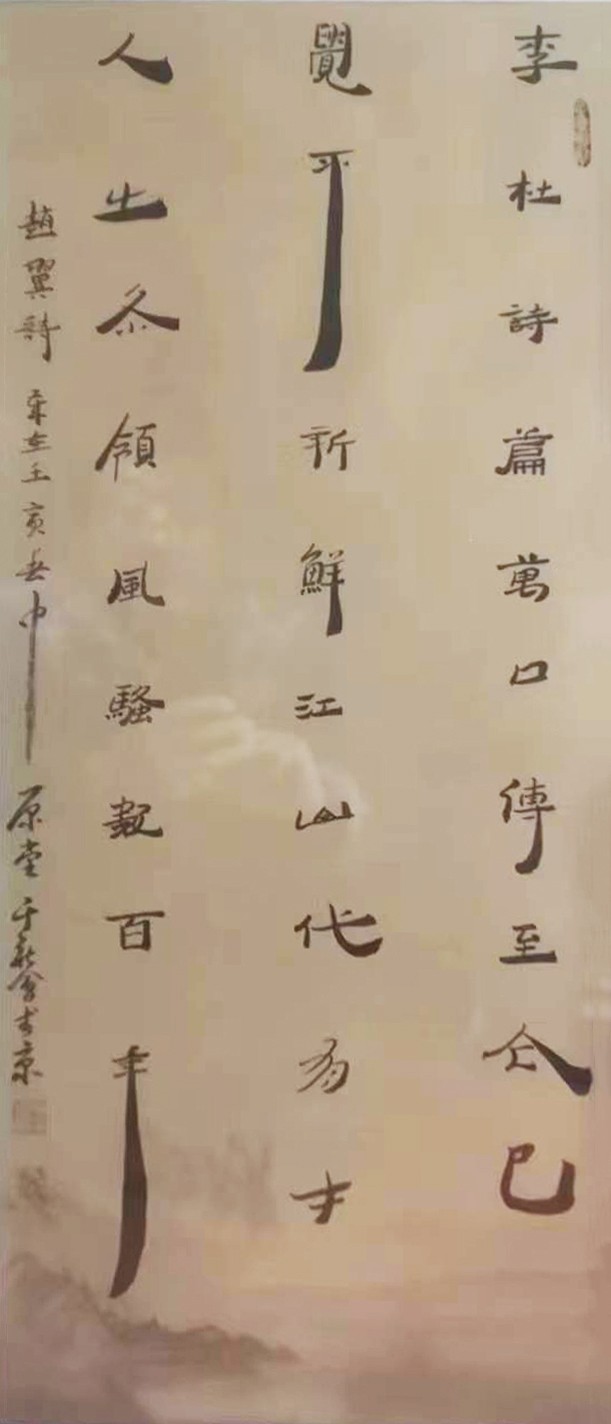 李杜詩篇萬口傳至今已
覺不新鮮江山代有才
人出各領風騷數百年
趙翼詩歲在壬寅春中原堂